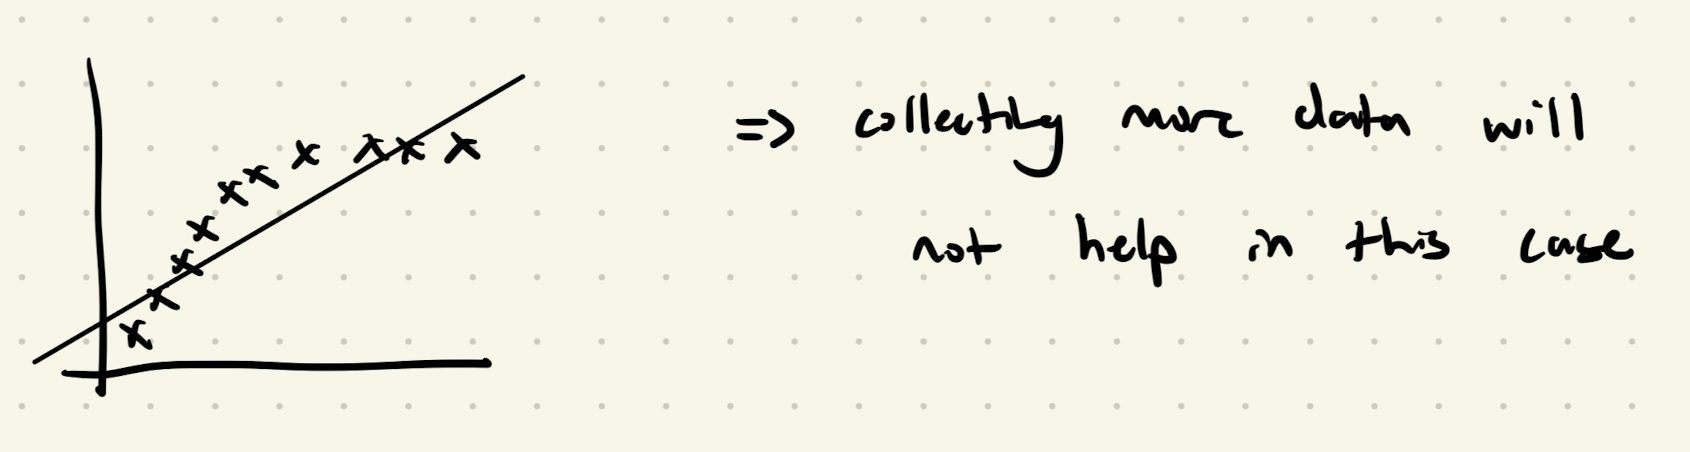 => collecting more data will
not help in this case